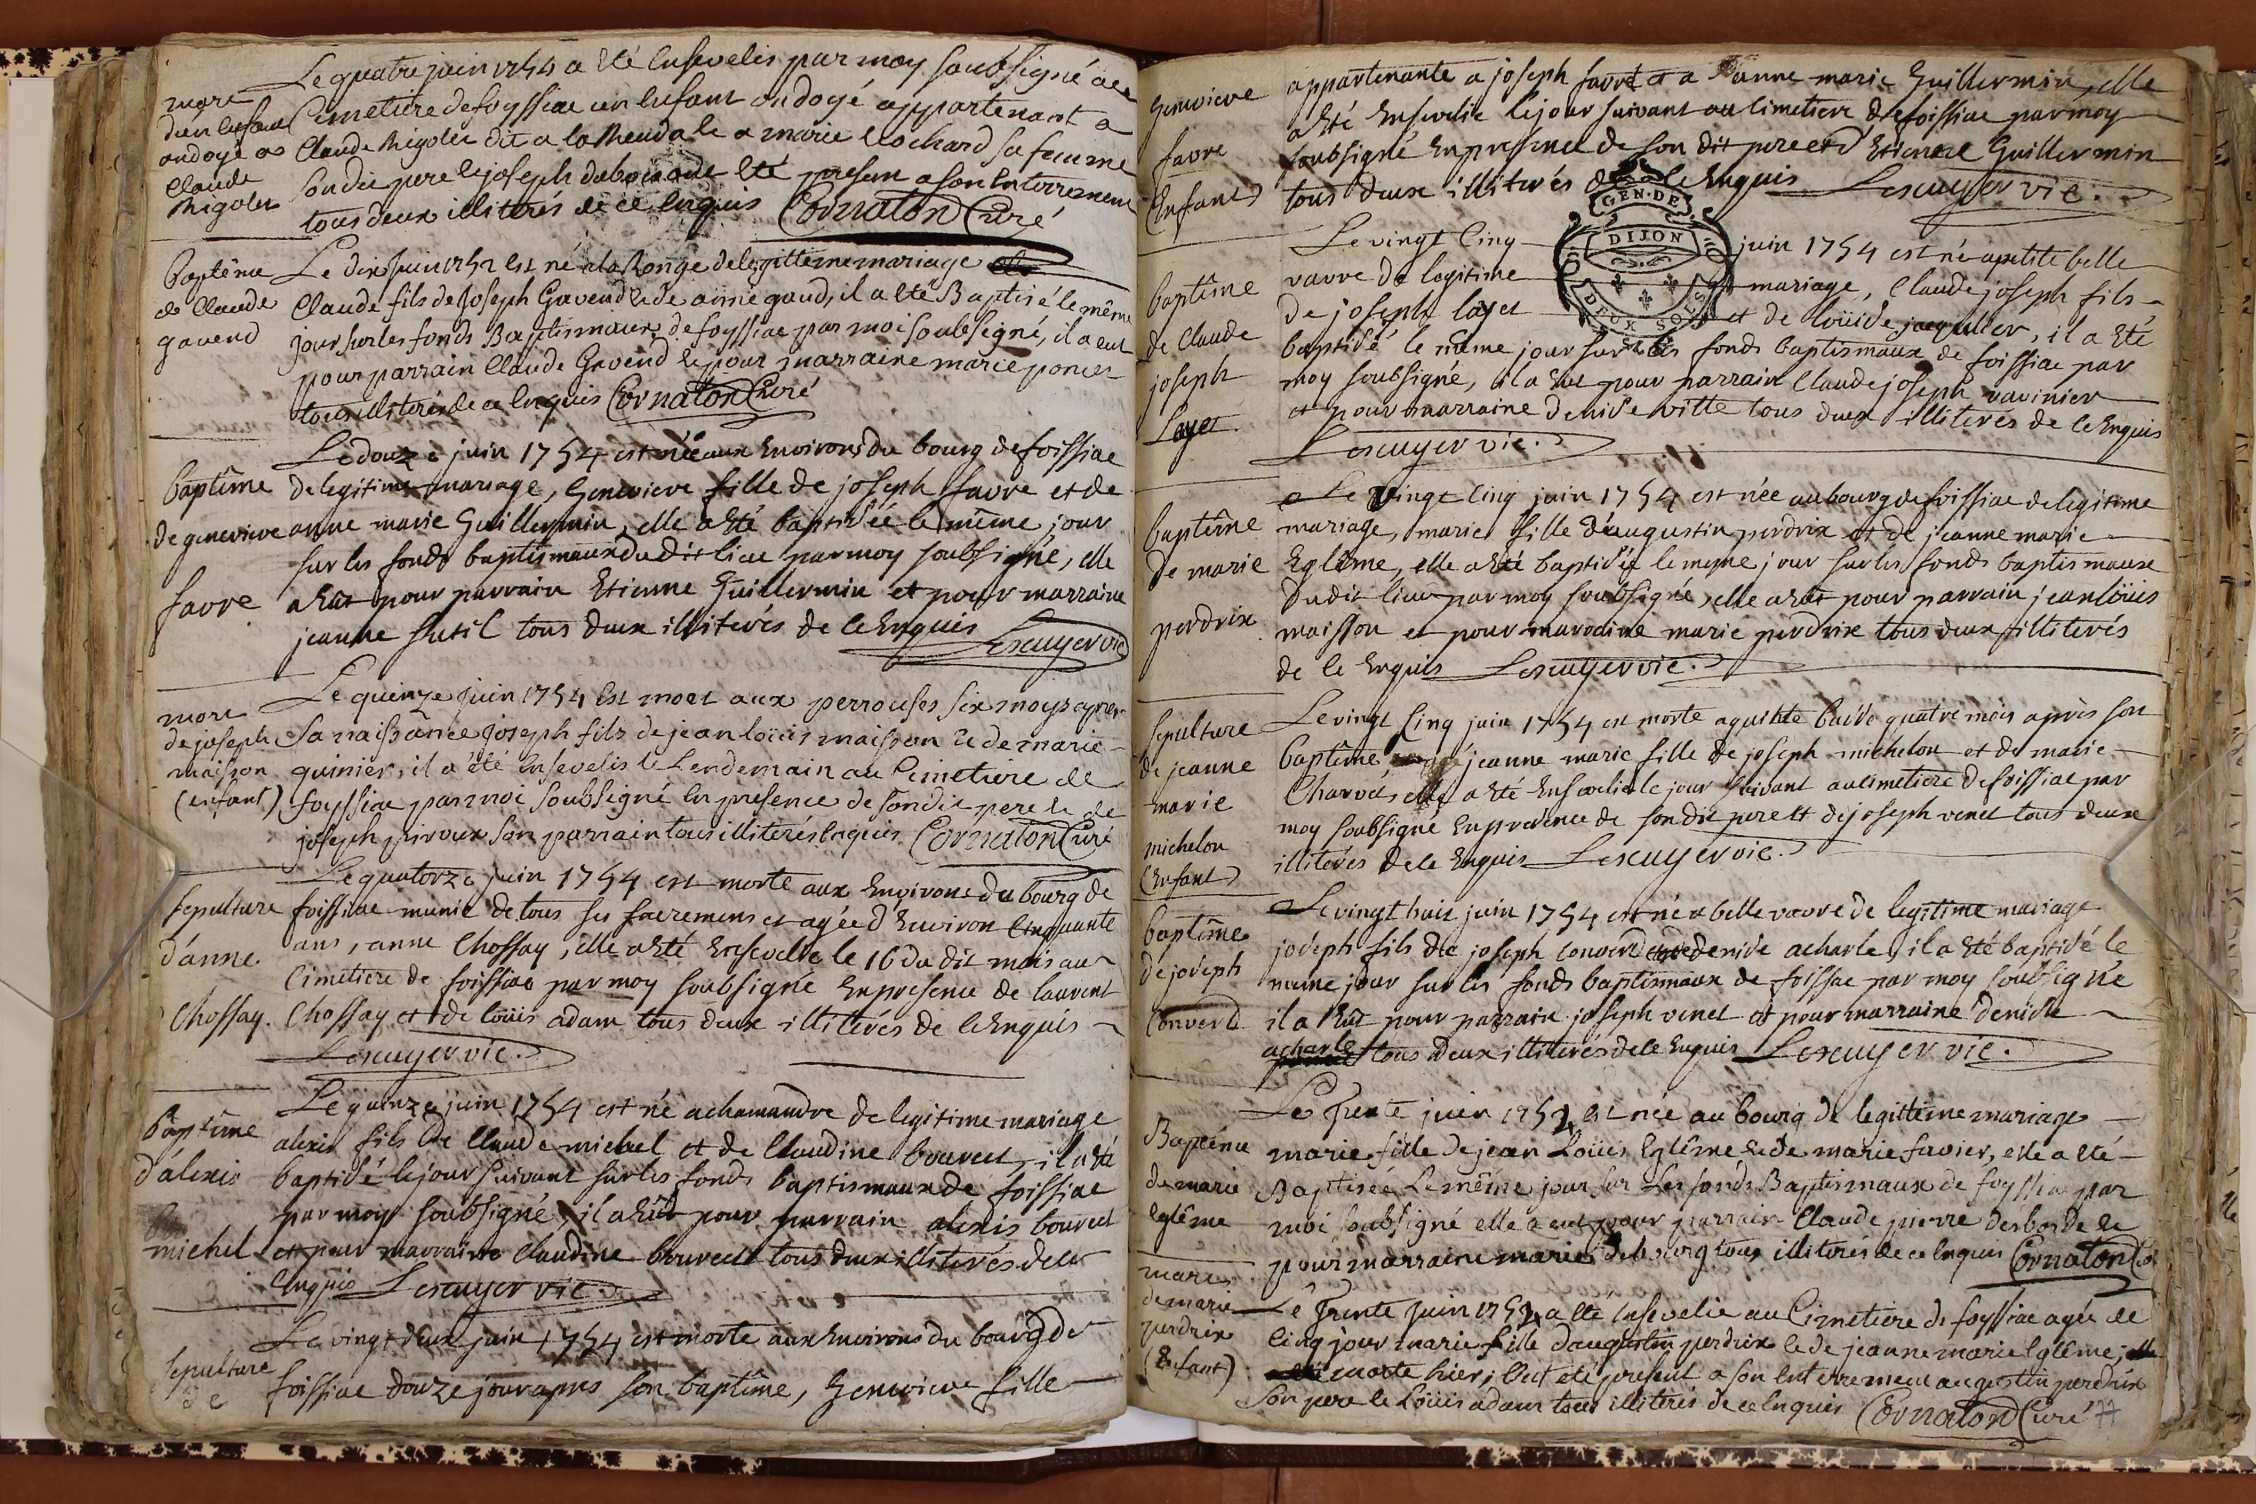 Le quatre juin 1754 a eté Ensevelis par moy soubsigné au
mort
d'un Enfant
ondoyé de
Claude
Rigolet
Cimetiere de foyssiac un Enfant ondoyé appartenant a
Claude Rigolet dit a la a marie Bochard sa femme
son dit pere et joseph dubois ont eté present a son Enterrement
tous deux illiterés de ce Enquis Cornaton Curé
Baptême
de Claude
gavend
Le dix juin 1754 est né a la Ronge de legitteme mariage
Claude fils de Joseph Gavend et de anne gaud, il a eté Baptisé le même
jour sur les fonds Baptismaux de foyssiac par moi soubsigné, il a eut
pour parrain Claude Gavend et pour marraine marie poncet
tous illiterés de ce Enquis Cornaton Curé
baptême
de genevieve
favre
Le douze juin 1754 est née aux Environs du bourg de foissiac
de legitime mariage, Genevieve fille de joseph favre et de
anne marie Guillermin, elle a Eté baptisée le même jour
sur les fonds baptismaux du dit lieu par moy soubsigné, elle
a Eut pour parrain Etienne Guillermin et pour marraine
jeanne sutil tous deux illiterés de ce Enquis
Lescuyer vic
mort
de joseph
maisson
(enfant)
Le quinze juin 1754 Est mort aux perrouses six moys apres
sa naissance Joseph fils de jean loüis maisson et de marie
quinier, il a été Ensevelis le Lendemain au Cimetiere de
foyssiac par moi soubsigné En presence de son dit pere et de
joseph piroux son parrain tous illiterés Enquis Cornaton Curé
sepulture
d'anne
Chossay.
Le quatorze juin 1754 est morte aux Environs du bourg de
foissiac munie de tous ses sacremens et agée d'Environ Cinquante
ans, anne Chossay, elle a Eté Ensevelie le 16 du dit mois au
Cimetiere de foissiac par moy soubsigné En presence de laurent
Chossay et de loüis adam tous deux illiterés de ce Enquis
Lescuyer vic.
baptême
d'alexis
michel
Le quinze juin 1754 est né a chamandre de legitime mariage
alexis fils de Claude michel et de Claudine bouvect, il a Eté
baptisé le jour suivant sur les fonds baptismaux de foissiac
par moy soubsigné, il a Eut pour parrain alexis bouvect
et pour marraine Claudine bouvect tous deux illiterés de ce
Enquis Lescuyer vic.
sepulture
de
Le vingt deux juin 1754 est morte aux Environs du bourg de
foissiac douze jour apres son baptême, Genevieve fille
Genevieve
favre
(Enfant)
appartenante a joseph favre et a anne marie Guillermin, elle
a Eté Ensevelie le jour suivant au Cimetiere de foissiac par moy
soubsigné En presence de son dit pere et d'Etienne Guillermin
tous deux illiterés de ce Enquis Lescuyer vic.
GEN. DE
DIJON
DEUX SOLS
baptême
de Claude
joseph
Layet
Le vingt Cinq juin 1754 est né a petite belle
vavre de legitime mariage, Claude joseph fils
de joseph layet et de loüise jacquiler, il a Eté
baptisé le même jour sur les fonds baptismaux de foissiac par
moy soubsigné, il a Eut pour parrain Claude joseph ravinier
et pour marraine denise vitte tous deux illiterés de ce Enquis
Lescuyer vic.
baptême
de marie
perdrix
Le vingt Cinq juin 1754 est née au bourg de foissiac de legitime
mariage, marie fille d'augustin perdrix et de jeanne marie
Eglême, elle a Eté baptisée le meme jour sur les fonds baptismaux
du dit lieu par moy soubsigné, elle a Eut pour parrain jean loüis
maisson et pour maraine marie perdrix tous deux illiterés
de ce Enquis Lescuyer vic.
sepulture
de jeanne
marie
michelon
(Enfant)
Le vingt Cinq juin 1754 est morte a quatre mois après son
baptême, jeanne marie fille de joseph michelon et de marie
Charvet, elle a Eté Ensevelie le jour suivant au Cimetiere de foissiac par
moy soubsigné En presence de son dit pere et de joseph venet tous deux
illiterés de ce Enquis Lescuyer vic.
baptême
de joseph
Convert
Le vingt huit juin 1754 est né a belle vavre de legitime mariage
joseph fils de joseph Convert et de denise acharle, il a Eté baptisé le
meme jour sur les fonds baptismaux de foissiac par moy soubsigné
il a Eut pour parrain joseph venet et pour marraine denise
acharle tous deux illiterés de ce Enquis Lescuyer vic.
Baptême
de marie
Eglême
Le Trente juin 1754 Est née au bourg de legitteme mariage
marie fille de jean Loüis Eglême et de marie favier, elle a eté
Baptisée Le même jour sur Les fonds Baptismaux de foyssiac par
moi soubsigné elle a eut pour parrain Claude pierre desborde et
pour marraine marie debourg tous illiterés de ce Enquis Cornaton Curé
mort
de marie
perdrix
(Enfant)
Le Trente Juin 1754 a eté Ensevelie au Cimetiere de foyssiac agée de
Cinq jour marie fille d'augustin perdrix et de jeanne marie Eglême,
morte hier, Ont eté present a son Enterrement augustin perdrix
son pere et Loüis adam tous illiterés de ce Enquis Cornaton Curé
77